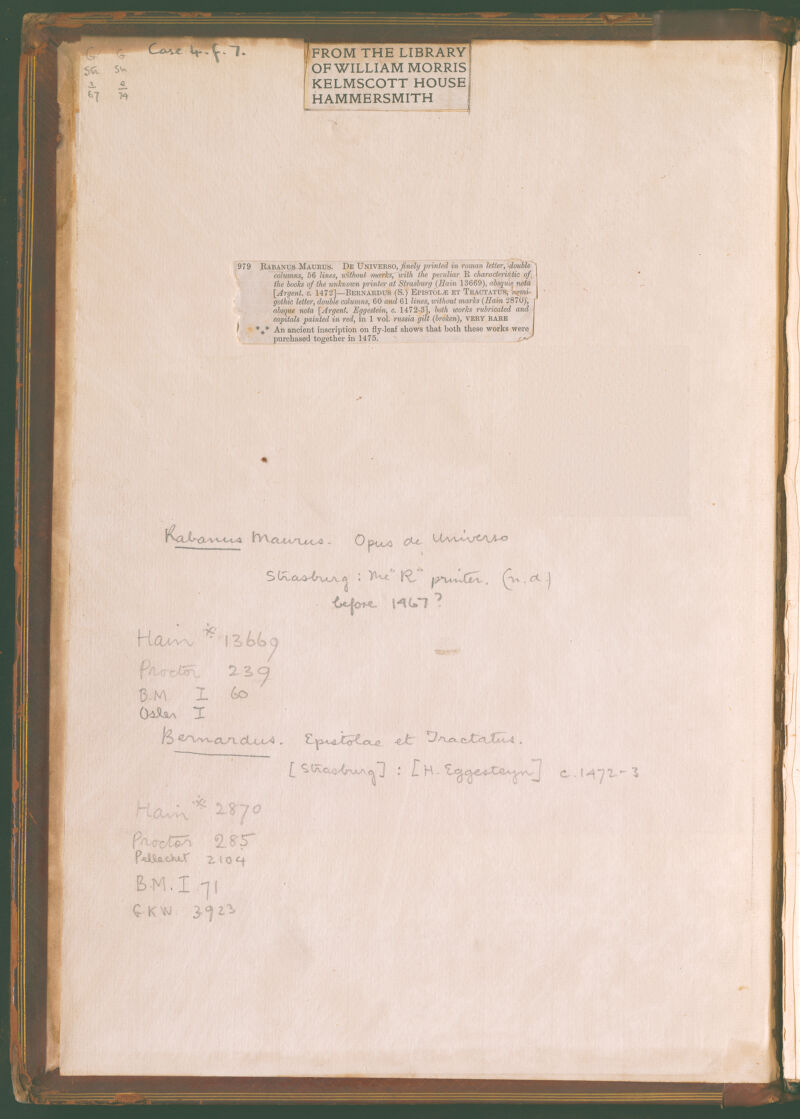 G G
Str Str
1 2
67 74
Case 4. f. 7.
FROM THE LIBRARY
OF WILLIAM MORRIS
KELMSCOTT HOUSE
HAMMERSMITH
979 RABANUS MAURUS. DE UNIVERSO, finely printed in roman letter, double
columns, 56 lines, without marks, with the peculiar R characteristic of
the books of the unknown printer at Strasburg (Hain 13669), absque nota
[Argent. c. 1472]—BERNARDUS (S.) EPISTOLÆ ET TRACTATUS, semi-
gothic letter, double columns, 60 and 61 lines, without marks (Hain 2870),
absque nota [Argent. Eggestein, c. 1472-3], both works rubricated and
capitals painted in red, in 1 vol. russia gilt (broken), VERY RARE
*** An ancient inscription on fly-leaf shows that both these works were
purchased together in 1475.
Rabanus Maurus. Opus de Universo
Strasburg : The "R" printer. (n.d.)
before 1467?
Hain * 13669
Proctor 239
B.M. I 60
Osler I
Bernardus. Epistolae et Tractatus.
[Strasburg] : [H. Eggesteyn] c.1472-3
Hain * 2870
Proctor 285
Pellechet 2104
B.M. I 71
GKW 3923